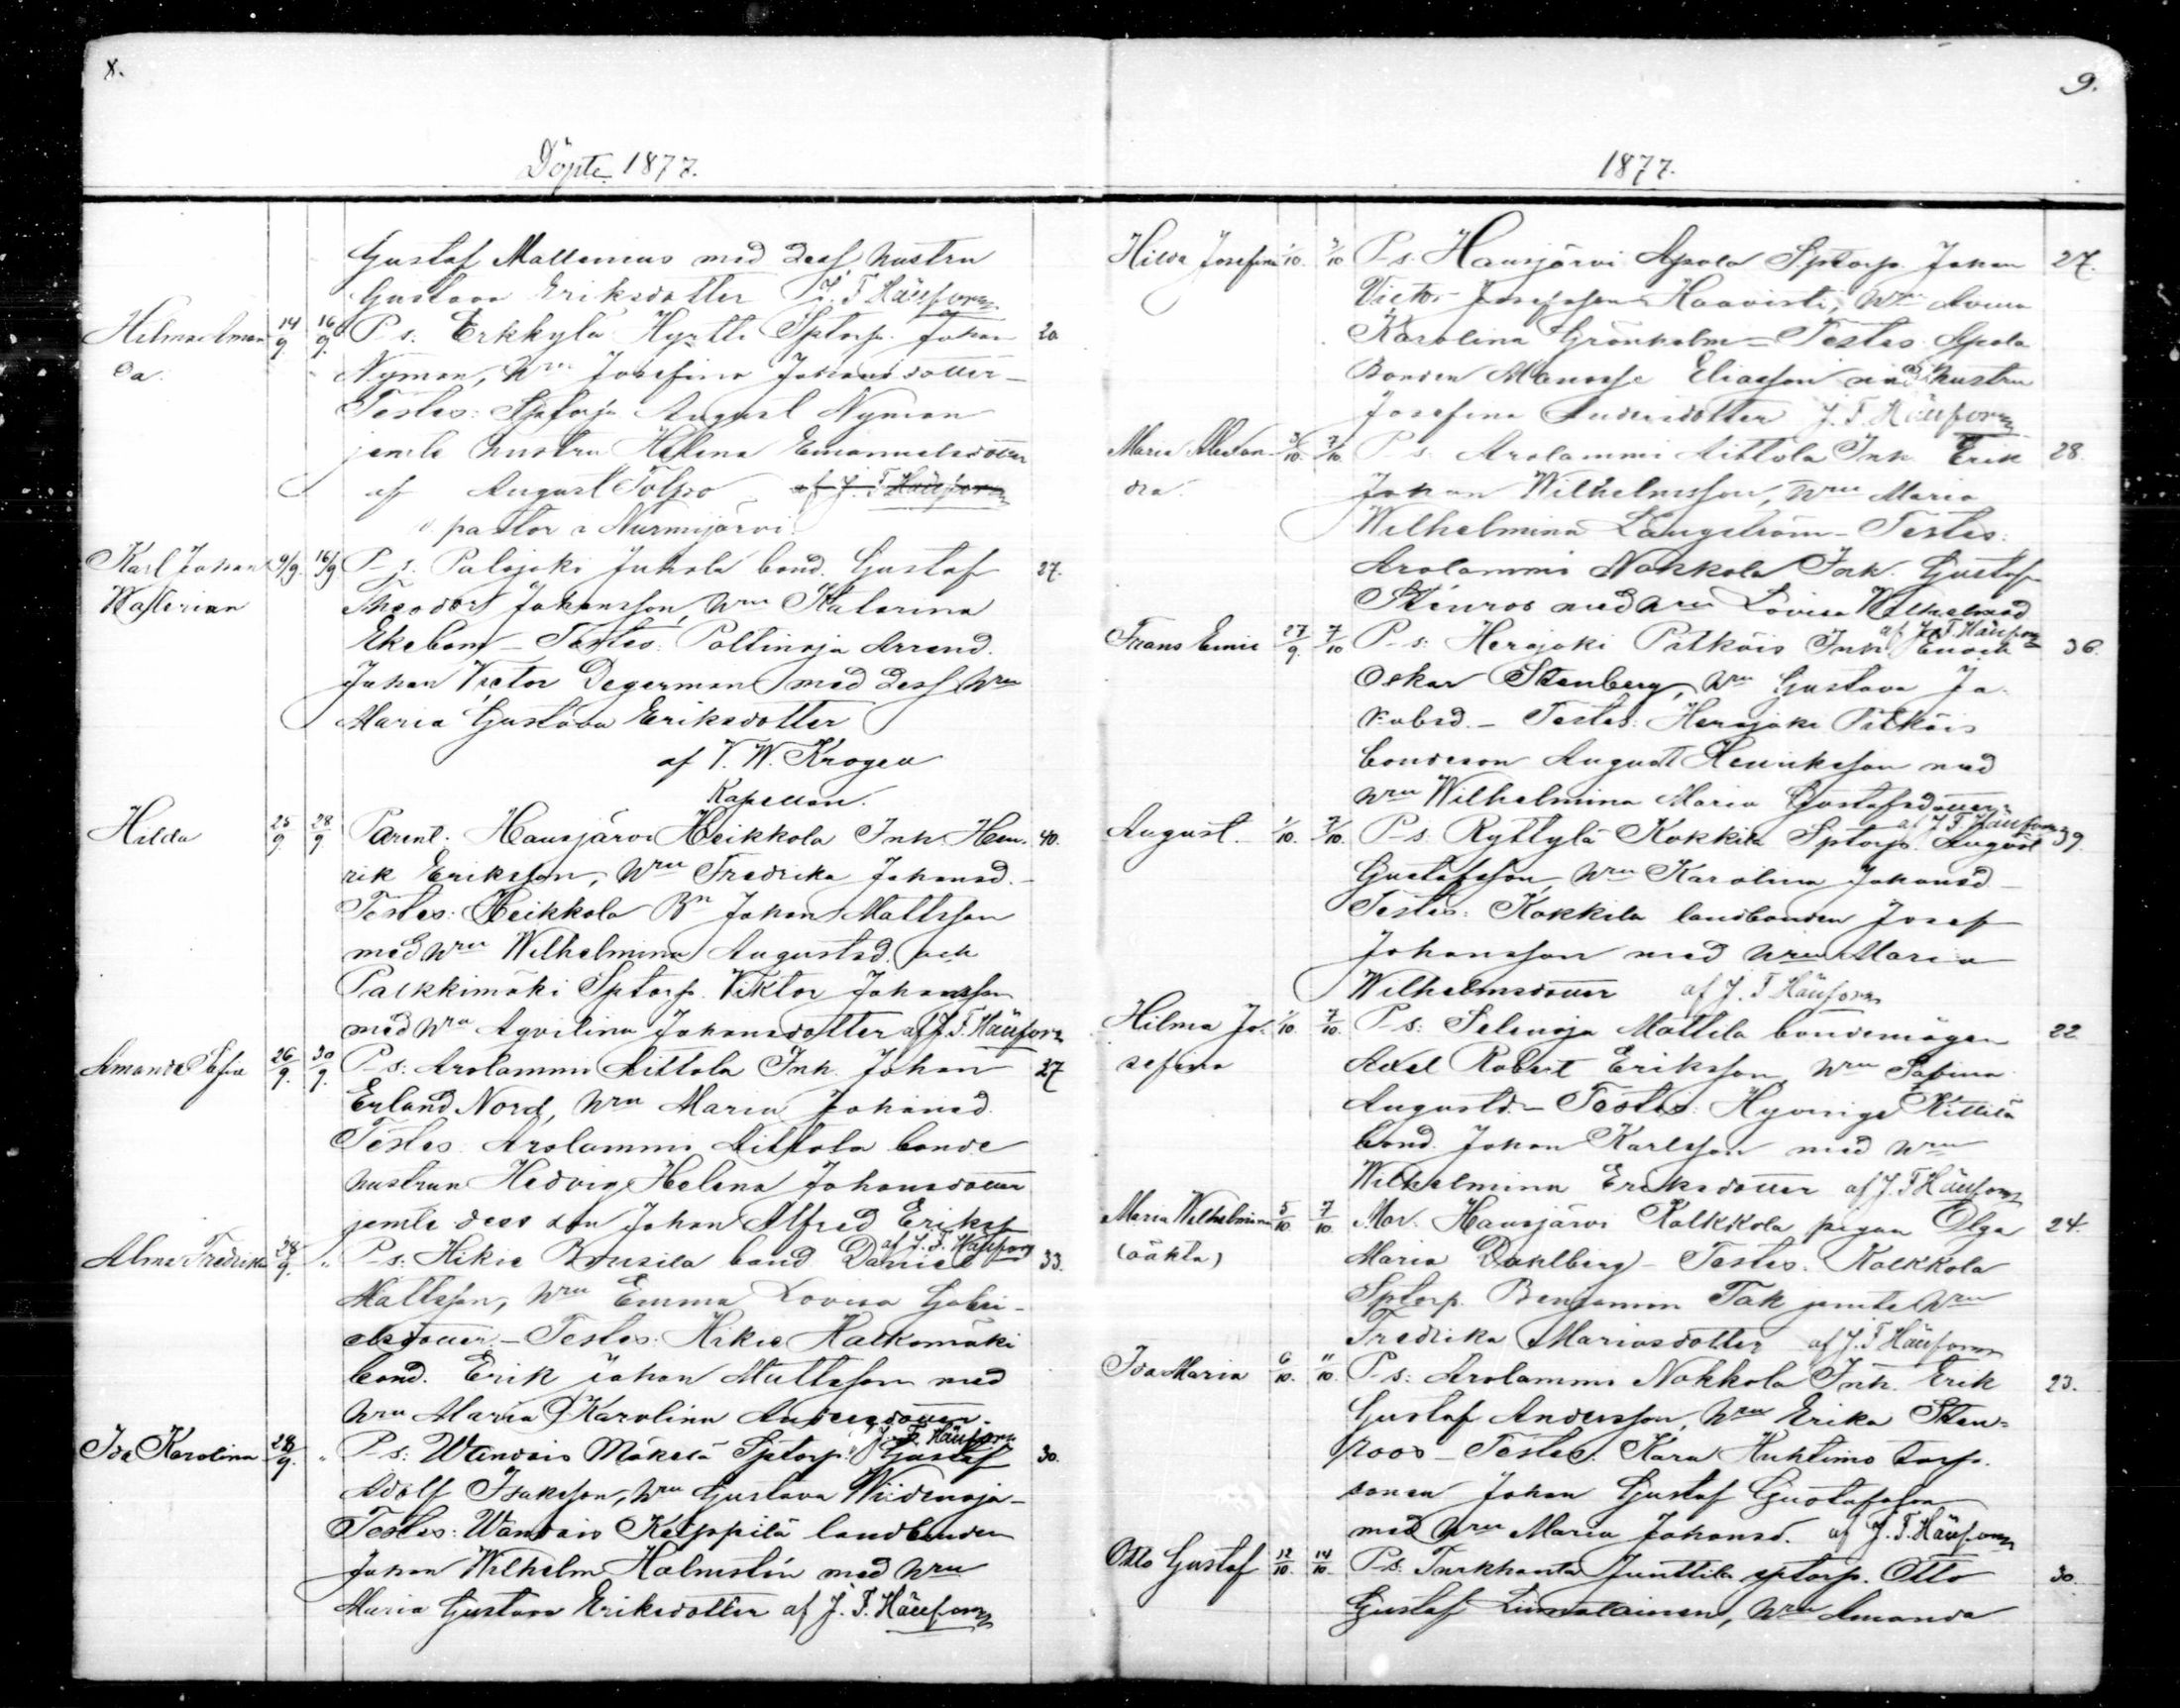 8.
Döpte 1877.
Gustaf Mattenius med dess hustru
Gustava Eriksdotter J. F. Häufom
Hilma Aman- 14/9 16/9 P-s. Erkkylä Hyrtti Sptorp. Johan 20
da. Nyman, hru Josefina Johansdotter -
Testes: Sptorp August Nyman
jemte hustru Helena Emanuelsdotter
af August Tolpo af J. F. Häufom
pastor i Nurmijärvi.
Karl Johan 9/9. 16/9 P-s. Palojoki Juhola bond. Gustaf 27.
Theodor Johansson, hru Katarina
Ekebom - Testes: Arrend.
Johan Victor Degerman med dess hru
Maria Gustava Eriksdotter
af V. W. Krogen
Kapellan.
Hilda 25/9 28/9 Parent. Hausjärvi Heikkola Inh. Hen- 40.
rik Eriksson, hru Fredrika Johansd. -
Testes: Heikkola Bn Johan Mattsson
med hru Wilhelmina Augustsd. och
Palkkimäki Sptorp. Viktor Johansson
med hru Aqvilina Johansdotter af J. F. Häufom
Amanda Sofia 26/9. 30/9. P-s: Arolammi Aittola Inh. Johan 27
Erland Nord, hru Maria Johansd.
Testes. Arolammi Aittola bonde
hustrun Hedvig Helena Johansdotter
jemte dess son Johan Alfred Eriksson
af J. F. Häufom
Alma Fredrika 28/9. " P-s: Hikiä Brusila bond Daniel 33.
Mattsson, hru Emma Lovisa Gabri-
elsdotter - Testes: Hikiä Kalkomäki
bond. Erik Johan Mattsson med
hru Maria Karolina Andersdotter.
J. F. Häufom
Ida Karolina 28/9. " P-s: Wandais Mäkelä Sptorp. Gustaf 30.
Adolf Isaksson, hru Gustava Wiidenoja -
Testes: Wandais Keippilä landbonden
Johan Wilhelm Holmstén med hru
Maria Gustava Eriksdotter af J. F. Häufom
9.
1877.
Hilda Josefina 1/10. 7/10 P-s. Hausjärvi Apola Sptorp. Johan 27.
Victor Josefsson Haavisto, hru
Karolina Grönholm - Testes. Apola
Bonden Manasse Eliasson med hustru
Josefina Andersdotter J. F. Häufom
Maria Alexan- 3/10. 7/10. P-s. Arolammi Aittola Inh Erik 28.
dra. Johan Wilhelmsson, hru Maria
Wilhelmina Långström - Testes:
Arolammi Nokkola Inh. Gustaf
Sténroos med hru Lovisa Wilhelmsd
af J. F. Häufom
Frans Emil 27/9. 7/10 P-s: Herajoki Pitkäis Inh Enoch 36.
Oskar Stenberg, hru Gustava Ja-
kobsd. - Testes: Herajoki Pitkäis
bondeson August Henriksson med
hru Wilhelmina Maria Gustafsdotter
af J. F. Häufom
August. 1/10. 7/10. P-s. Ryttylä Kokkila Sptorp. August 39.
Gustafsson, hru Karolina Johansd -
Testes: Kokkila landbonden Josef
Johansson med hru Maria
Wilhelmsdotter af J. F. Häufom
Hilma Jo- 1/10. 7/10. P-s: Selenoja Mattila bondemågen 22
sefina Axel Robert Eriksson, hru Safina
Augustd. - Testes: Hyvinge Kittilä
bond. Johan Karlsson med hru
Wilhelmina Eriksdotter af J. F. Häufom
Maria Wilhelmina 5/10. 7/10. Mor. Hausjärvi Kalkkola pigan Olga 24.
(oäkta) Maria Dahlberg - Testes. Kalkkola
Sptorp. Benjamin Tak jemte hru
Fredrika Mariasdotter af J. F. Häufom
Ida Maria 6/10. 11/10. P-s: Arolammi Nokkola Inh. Erik 23.
Gustaf Andersson, hru Erika Sten-
roos - Testes: Kara Huhtimo torp.
sonen Johan Gustaf Gustafsson
med hru Maria Johansd. af J. F. Häufom
Otto Gustaf 12/10. 14/10. P-s. Turkhauta Junttila sptorp. Otto 30.
Gustaf hru Amanda